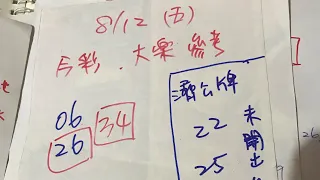 8/12 (五)
今彩.大樂參考
06
26 34
濟公牌
22
25
未開出
26